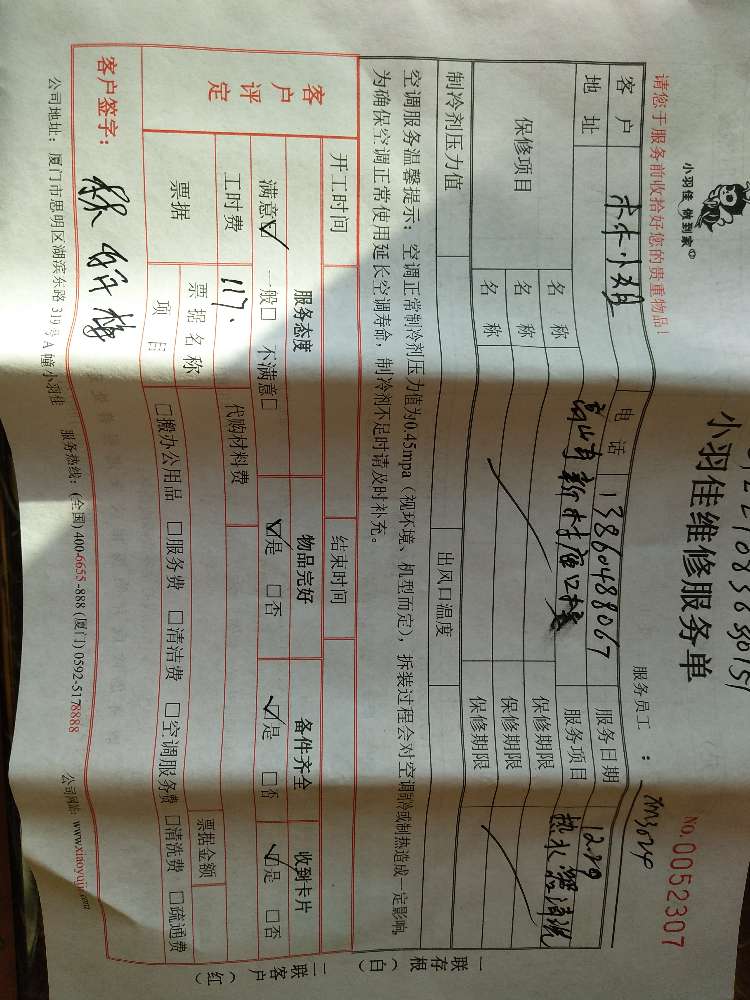 小羽佳 做到家
小羽佳维修服务单
NO.0052307
请您于服务前收拾好您的贵重物品！
服务员工：
客户 电话 13860488067 服务日期 12.29
地址 服务项目 热水器清洗
保修项目 名称 保修期限
名称 保修期限
名称 保修期限
制冷剂压力值 出风口温度
空调服务温馨提示：空调正常制冷剂压力值为0.45mpa（视环境、机型而定），拆装过程会对空调制冷或制热造成一定影响，
为确保空调正常使用延长空调寿命，制冷剂不足时请及时补充。
开工时间 结束时间
客户评定 服务态度 物品完好 备件齐全 收到卡片
满意☑ 一般□ 不满意□ ☑是 □否 ☑是 □否 ☑是 □否
工时费 117. 代购材料费
票据 票据名称 票据金额
项目 □搬办公用品 □服务费 □清洁费 □空调服务费 □清洗费 □疏通费
客户签字：
公司地址：厦门市思明区湖滨东路319号A幢小羽佳 服务热线：(全国) 400-6655-888 (厦门) 0592-5178888 公司网站：www.xiaoyujia.com
一联存根（白）
二联客户（红）